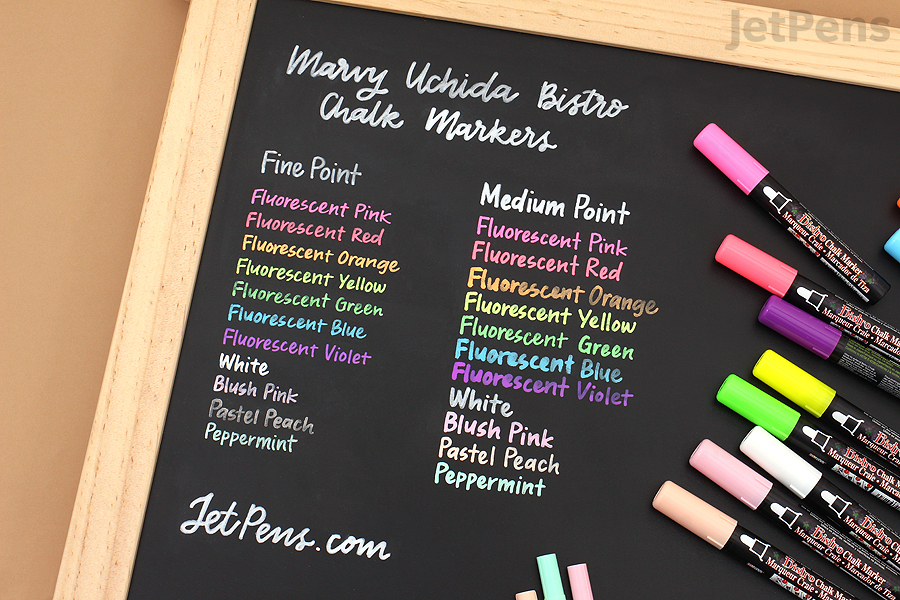 JetPens
Marvy Uchida Bistro
Chalk Markers
Fine Point
Fluorescent Pink
Fluorescent Red
Fluorescent Orange
Fluorescent Yellow
Fluorescent Green
Fluorescent Blue
Fluorescent Violet
White
Blush Pink
Pastel Peach
Peppermint
Medium Point
Fluorescent Pink
Fluorescent Red
Fluorescent Orange
Fluorescent Yellow
Fluorescent Green
Fluorescent Blue
Fluorescent Violet
White
Blush Pink
Pastel Peach
Peppermint
JetPens.com
Bistro Chalk Marker
Marqueur Craie • Marcador de Tiza
Bistro Chalk Marker
Marqueur Craie • Marcador
Bistro Chalk
Marqueur Craie
Bistro
Marqueur
Bistro
Marqueur Craie
Bistro Chalk
Marqueur Craie
Bistro Chalk Marker
Marqueur Craie • Marcador
Bistro Chalk Marker
Marqueur Craie • Marcador de Tiza